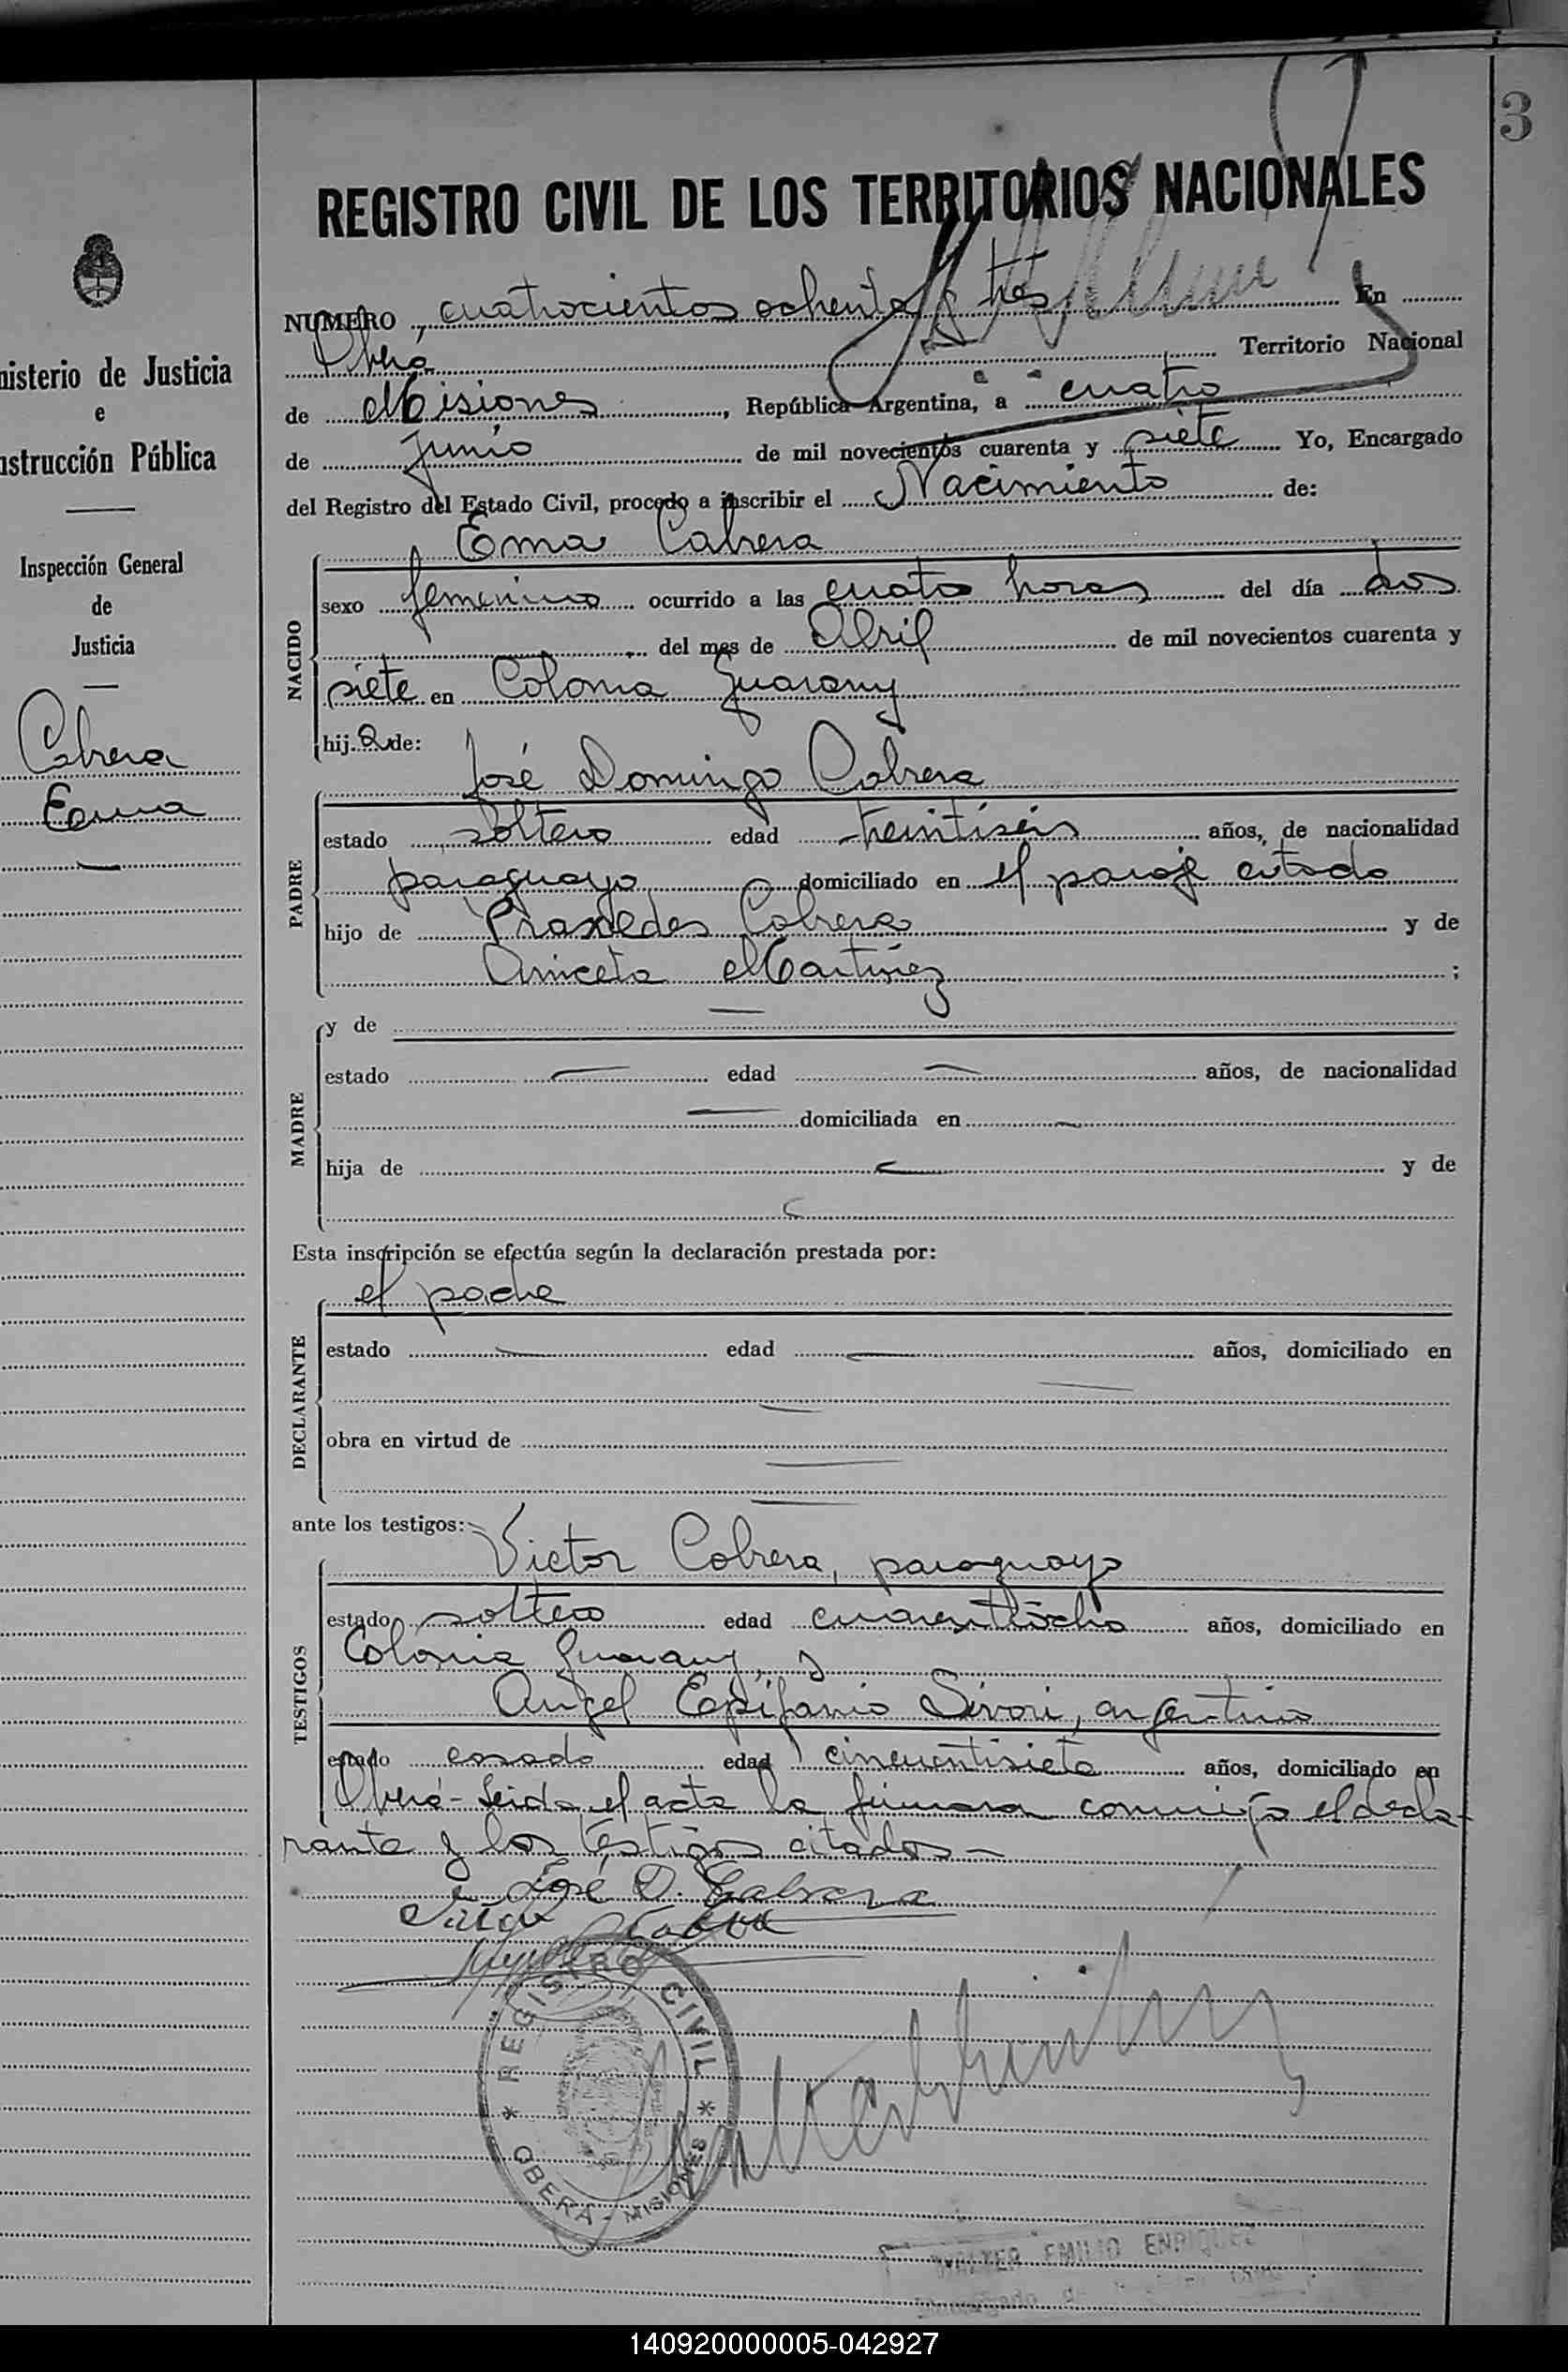 3
REGISTRO CIVIL DE LOS TERRITORIOS NACIONALES
nisterio de Justicia
e
nstrucción Pública
Inspección General
de
Justicia
Cabrera
Ema
NUMERO cuatrocientos ochenta y tres En
Oberá Territorio Nacional
de Misiones, República Argentina, a cuatro
de junio de mil novecientos cuarenta y siete Yo, Encargado
del Registro del Estado Civil, procedo a inscribir el Nacimiento de:
NACIDO
Ema Cabrera
sexo femenino ocurrido a las cuatro horas del día dos
del mes de Abril de mil novecientos cuarenta y
siete en Colonia Guarany
hija de:
PADRE
José Domingo Cabrera
estado soltero edad treintiséis años, de nacionalidad
paraguayo domiciliado en el paraje citado
hijo de Praxedes Cabrera y de
Aniceta Martínez ;
MADRE
y de —
estado — edad — años, de nacionalidad
— domiciliada en —
hija de — y de
Esta inscripción se efectúa según la declaración prestada por:
DECLARANTE
el padre
estado — edad — años, domiciliado en
—
obra en virtud de —
—
ante los testigos:
TESTIGOS
Victor Cabrera, paraguayo
estado soltero edad cuarentiocho años, domiciliado en
Colonia Guarany, y
Angel Epifanio Sivori, argentino
estado casado edad cincuentisiete años, domiciliado en
Oberá - Leida el acta la firmaron conmigo el decla-
rante y los testigos citados -
José D. Cabrera
REGISTRO CIVIL
OBERÁ - MISIONES
WALTER EMILIO ENRIQUEZ
140920000005-042927